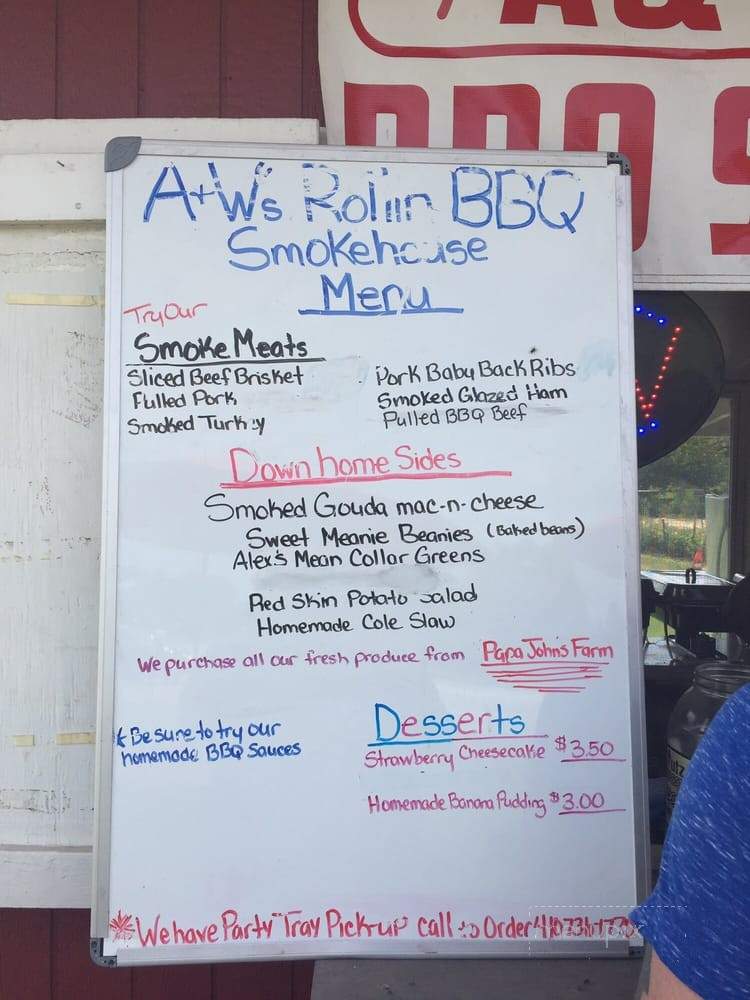 A+W's Rollin BBQ
Smokehouse
Menu
Try Our
Smoke Meats
Sliced Beef Brisket
Pulled Pork
Smoked Turkey
Pork Baby Back Ribs
Smoked Glazed Ham
Pulled BBQ Beef
Down home Sides
Smoked Gouda mac-n-cheese
Sweet Meanie Beanies (Baked beans)
Alex's Mean Collar Greens
Red Skin Potato Salad
Homemade Cole Slaw
We purchase all our fresh produce from Papa John's Farm
* Be sure to try our
homemade BBQ Sauces
Desserts
Strawberry Cheesecake $3.50
Homemade Banana Pudding $3.00
* We have Party Tray Pick-up call to Order